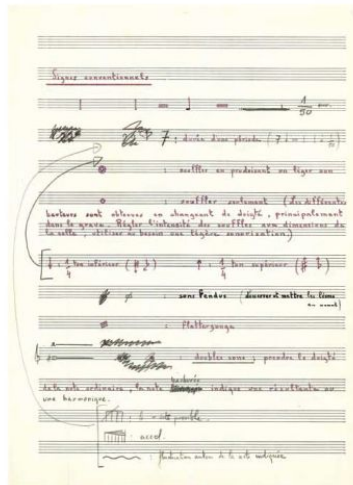 Signes conventionnels
1/50
7 : durée d'une période (7
: souffler en produisant un léger son
: souffler seulement (Les différentes
hauteurs sont obtenues en changeant de doigté, principalement
dans le grave. Régler l'intensité des souffles aux dimensions de
la salle, utiliser au besoin une légère sonorisation.)
: 1/4 ton inférieur : 1/4 ton supérieur
: sans et mettre les
: Flatterzunge
: doubles sons ; prendre le doigté
de la note ordinaire, la note indique une résultante ou
une harmonique.
: possible.
: accel.
: fluctuation autour de la note indiquée